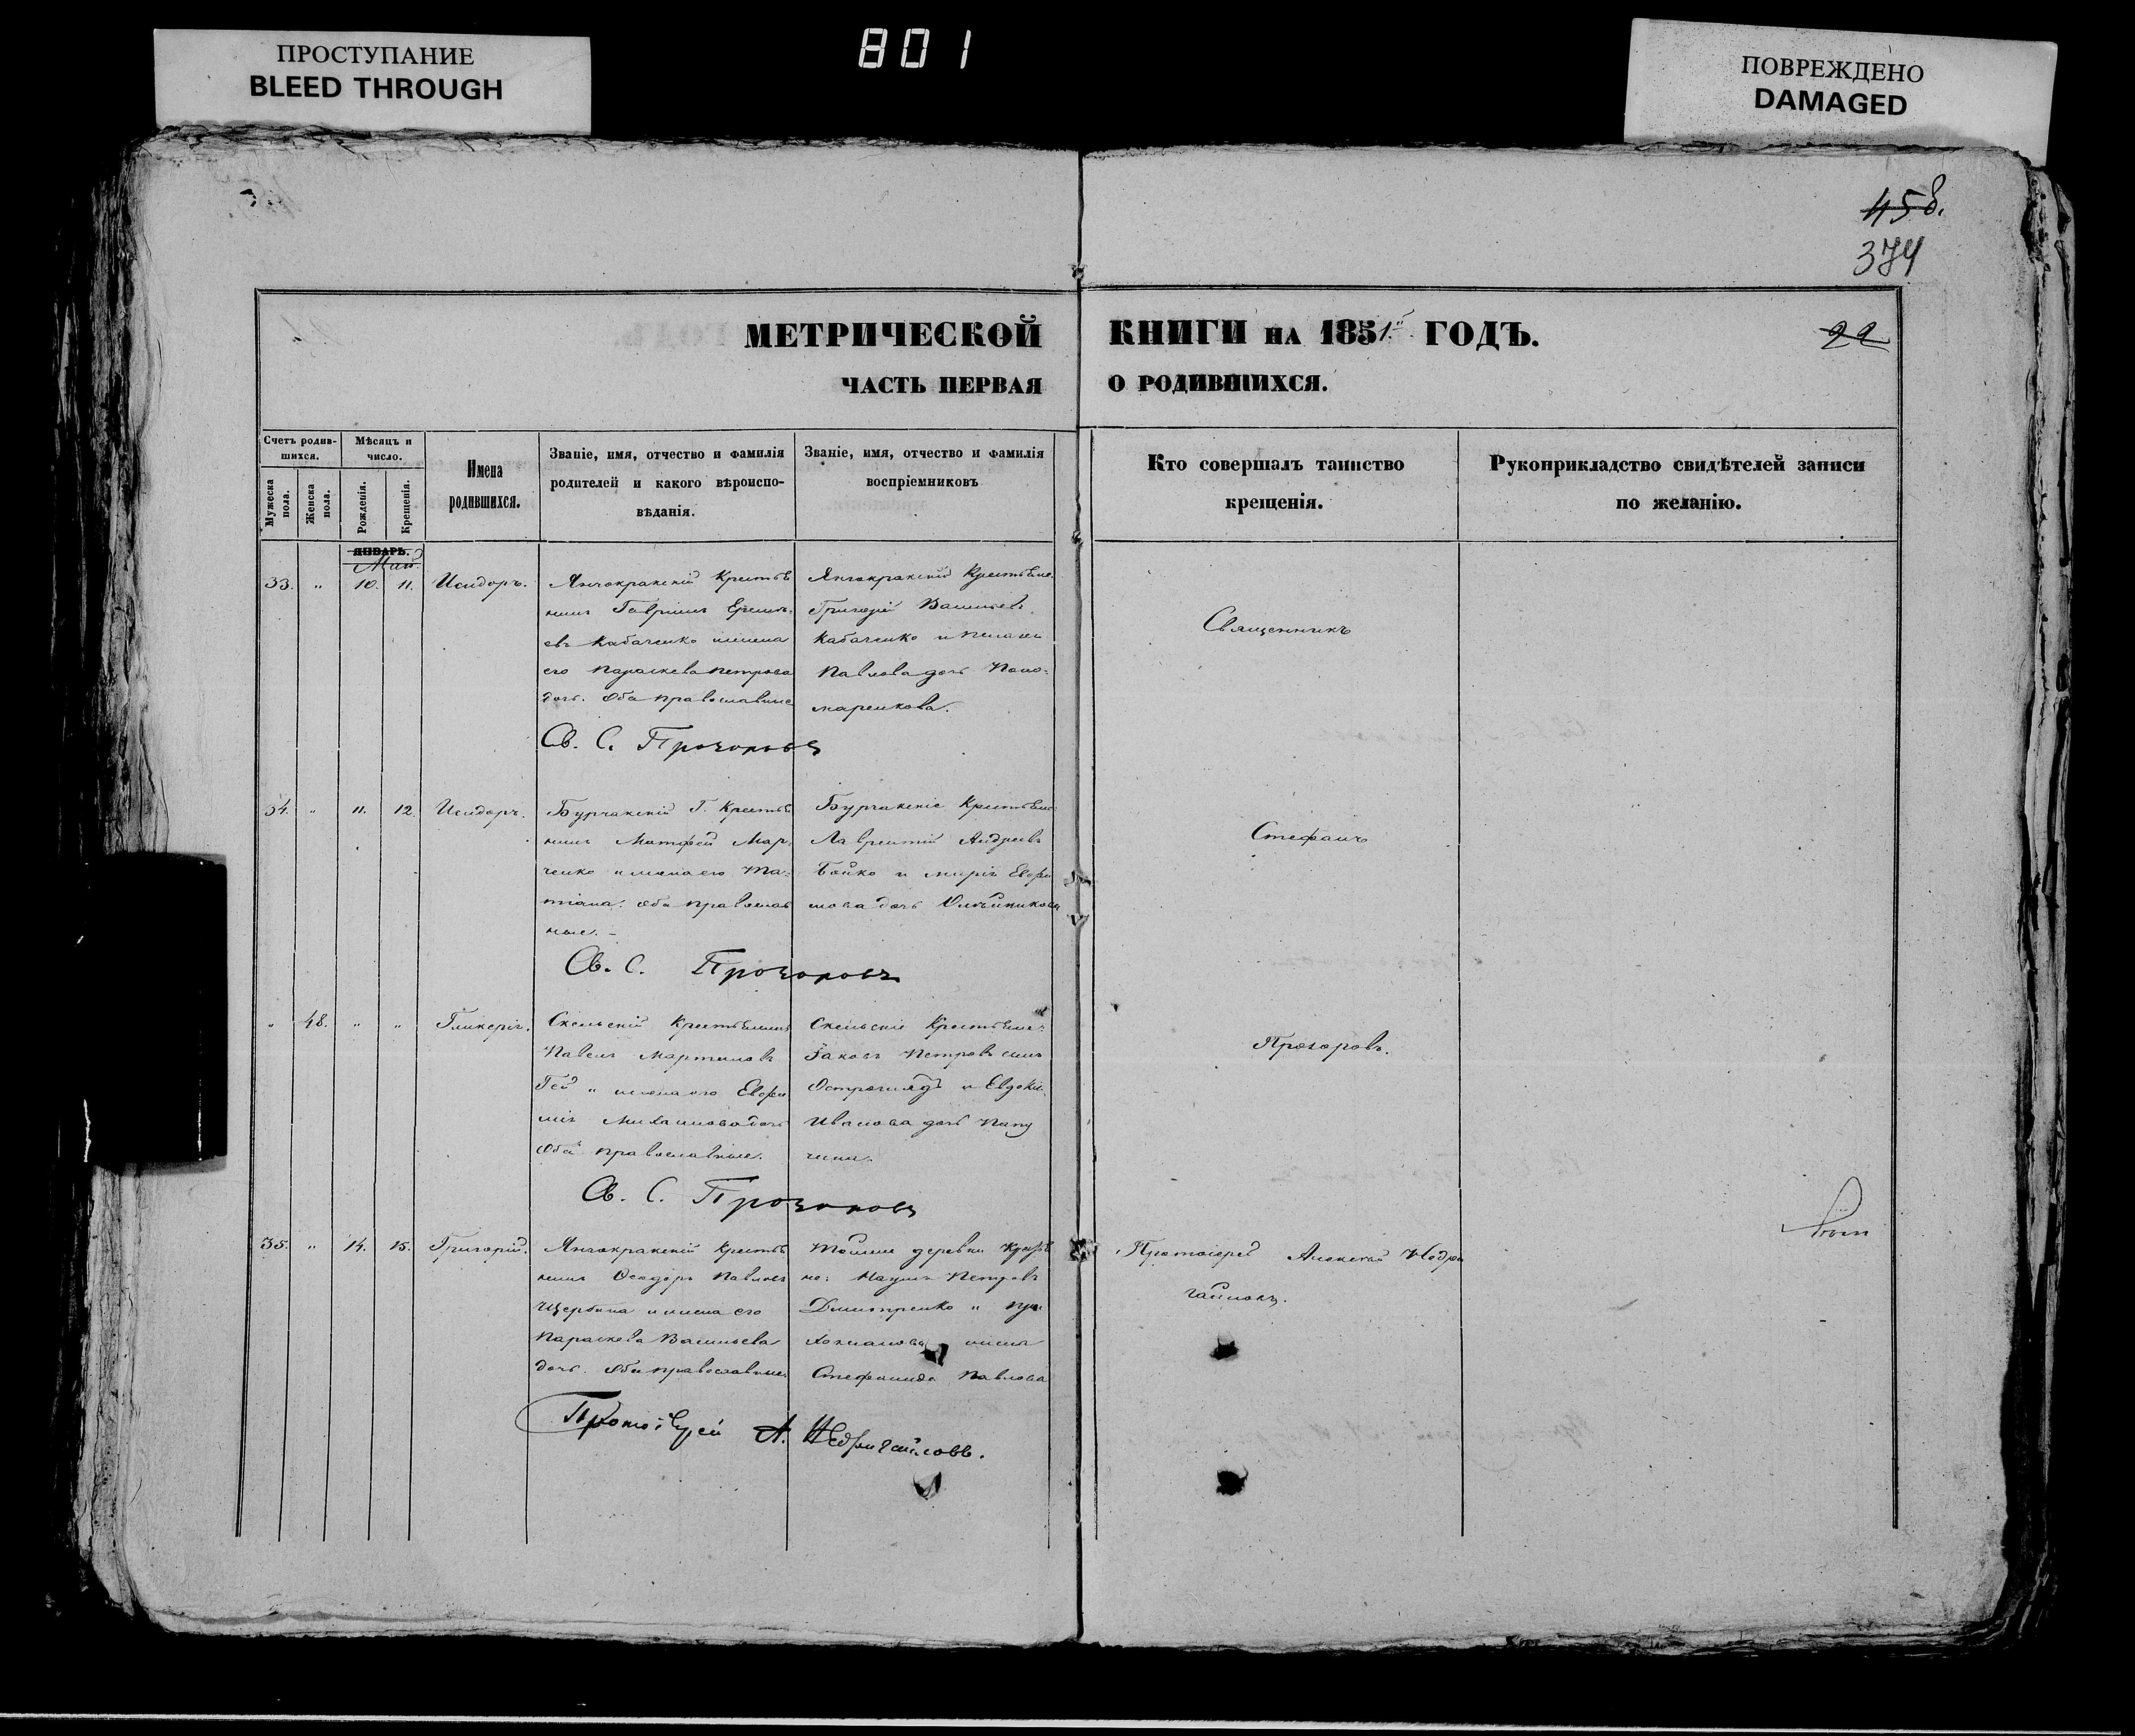 ПРОСТУПАНИЕ
BLEED THROUGH
801
ПОВРЕЖДЕНО
DAMAGED
458.
374
МЕТРИЧЕСКОЙ КНИГИ НА 1851 ГОДЪ.
22
ЧАСТЬ ПЕРВАЯ О РОДИВШИХСЯ.
Счетъ родив-
шихся.
Мужеска
пола.
Женска
пола.
Мѣсяцъ и
число.
Рожденія.
Крещенія.
Имена
родившихся.
Званіе, имя, отчество и фамилія
родителей и какого вѣроиспо-
вѣданія.
Званіе, имя, отчество и фамилія
воспріемниковъ
Кто совершалъ таинство
крещенія.
Рукоприкладство свидѣтелей записи
по желанію.
ЯНВАРЬ.
Май
33. " 10. 11. Исидоръ.
Янчокракскій Крестья
нинъ Гавріилъ
евъ Кабаченко и жена
его Параскева Петрова
дочь. Оба православные
Янчокракскій
Григорій Васильевъ
Кабаченко и
Павлова дочь Поно-
маренкова.
Священникъ
Св. С. Прозоровъ
34. " 11. 12. Исидоръ.
Бурчакскій Г. Крестья
нинъ Матфей Мар-
ченко и жена его Та-
тіана. Оба православ
ные.
Бурчакскіе
Лаврентій Андреевъ
Бойко и
дочь Олейникова
Стефанъ
Св. С. Прозоровъ
" 48. " " Гликерія.
Скельскій Крестьянинъ
Павелъ Мартиновъ
Гей и жена его Евфи
мія Михаилова дочь
Оба православные.
Скельскіе
Іаковъ Петровъ сынъ
и Евдокія
Иванова дочь
Прозоровъ.
Св. С. Прозоровъ
35. " 14. 15. Григорій.
Янчокракскій Крестья
нинъ Феодоръ Павловъ
Щербина и жена его
Параскева Васильева
дочь. Оба православные
деревни
Наумъ Петровъ
Дмитренко и
жена
Стефанида Павлова
Протоіерей Алексей Недри
гайловъ.
Протоіерей А. Недригайловъ.